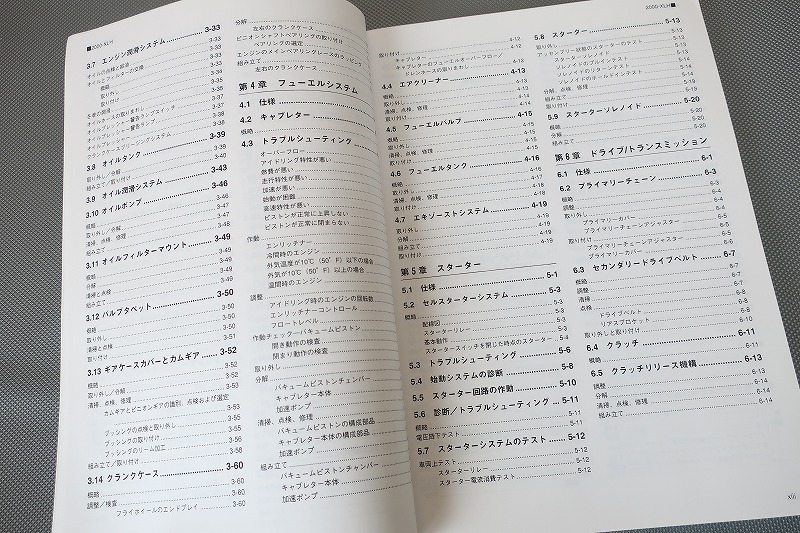 ■2000-XLH
3.7 エンジン潤滑システム 3-33
オイルの点検と給油
オイルとフィルターの交換 3-34
概略
取り外し 3-35
取り付け 3-35
冬季の潤滑
オイルホースの取りまわし
オイルプレッシャー警告ランプスイッチ
オイルプレッシャー警告ランプ
クランクケースブリージングシステム
3.8 オイルタンク 3-39
取り外し／分解 3-39
組み立て／取り付け 3-40
3.9 オイル潤滑システム 3-43
3.10 オイルポンプ 3-46
概略 3-46
取り外し／分解 3-47
清掃、点検、修理 3-48
組み立て 3-48
3.11 オイルフィルターマウント 3-49
概略 3-49
分解 3-49
清掃と点検 3-49
組み立て
3.12 バルブタペット 3-50
概略 3-50
取り外し 3-50
清掃と点検 3-51
取り付け 3-51
3.13 ギアケースカバーとカムギア 3-52
概略 3-52
取り外し／分解 3-52
清掃、点検、修理
カムギアとピニオンギアの識別、点検および選定
3-53
ブッシングの点検と取り外し 3-55
ブッシングの取り付け 3-55
ブッシングのリーム加工 3-56
組み立て／取り付け 3-58
3.14 クランクケース 3-60
概略 3-60
調整／検査 3-60
フライホイールのエンドプレイ 3-60
分解
左右のクランクケース
ピニオンシャフトベアリングの取り付け
ベアリングの選定
エンジンのメインベアリングレースのラッピング
組み立て
左右のクランクケース
第4章 フューエルシステム
4.1 仕様
4.2 キャブレター
概略
4.3 トラブルシューティング
オーバーフロー
アイドリング特性が悪い
燃費が悪い
走行特性が悪い
加速が悪い
始動が困難
高速特性が悪い
ピストンが正常に上昇しない
ピストンが正常に閉まらない
作動
エンリッチナー
冷間時のエンジン
外気温度が10℃（50°F）以下の場合
外気が10℃（50°F）以上の場合
温間時のエンジン
調整
アイドリング時のエンジンの回転数
エンリッチナーコントロール
フロートレベル
作動チェック－バキュームピストン
開き動作の検査
閉まり動作の検査
取り外し
分解
バキュームピストンチャンバー
キャブレター本体
加速ポンプ
清掃、点検、修理
バキュームピストンの構成部品
キャブレター本体の構成部品
加速ポンプ
組み立て
バキュームピストンチャンバー
キャブレター本体
加速ポンプ
2000-XLH■
取り付け 4-12
キャブレターの取り付け 4-12
キャブレターのフューエルオーバーフロー／
ドレンホースの取りまわし 4-12
4.4 エアクリーナー 4-13
概略 4-13
取り外し 4-13
清掃、点検、修理
取り付け 4-14
4.5 フューエルバルブ 4-15
概略 4-15
取り外し 4-15
清掃、点検、修理 4-15
取り付け 4-15
4.6 フューエルタンク 4-16
概略 4-16
取り外し 4-17
清掃、点検、修理 4-18
取り付け 4-18
4.7 エキゾーストシステム 4-19
取り外し 4-19
分解 4-19
組み立て 4-19
取り付け 4-19
第5章 スターター
5.1 仕様 5-1
5.2 セルスターターシステム 5-3
概略 5-3
配線図 5-3
スターターリレー 5-3
基本動作 5-3
スタータースイッチを閉じた時点のスターター 5-4
5.3 トラブルシューティング 5-6
5.4 始動システムの診断 5-8
5.5 スターター回路の作動 5-10
5.6 診断／トラブルシューティング 5-11
概略 5-11
電圧降下テスト 5-11
5.7 スターターシステムのテスト 5-12
車両上テスト 5-12
スターターリレー 5-12
スターター電流消費テスト 5-12
5.8 スターター 5-13
取り外し 5-13
アッセンブリー状態のスターターのテスト
スターターソレノイド 5-14
ソレノイドのプルインテスト 5-14
ソレノイドのリターンテスト 5-14
ソレノイドのホールドインテスト 5-14
分解、清掃、点検、修理
組み立て
取り付け
5.9 スターターソレノイド 5-20
概略 5-20
分解 5-20
組み立て 5-20
第6章 ドライブ/トランスミッション
6.1 仕様 6-1
6.2 プライマリーチェーン 6-3
概略 6-3
調整 6-3
取り外し
プライマリーカバー
プライマリーチェーンアジャスター
取り付け
プライマリーチェーンアジャスター
プライマリーカバー
6.3 セカンダリードライブベルト 6-7
概略 6-7
調整 6-7
清掃 6-7
点検
ドライブベルト 6-8
リアスプロケット 6-9
取り外しと取り付け
6.4 クラッチ 6-11
概略 6-11
6.5 クラッチリリース機構 6-13
調整 6-13
分解 6-14
清掃、点検、修理 6-14
組み立て 6-14
xiii